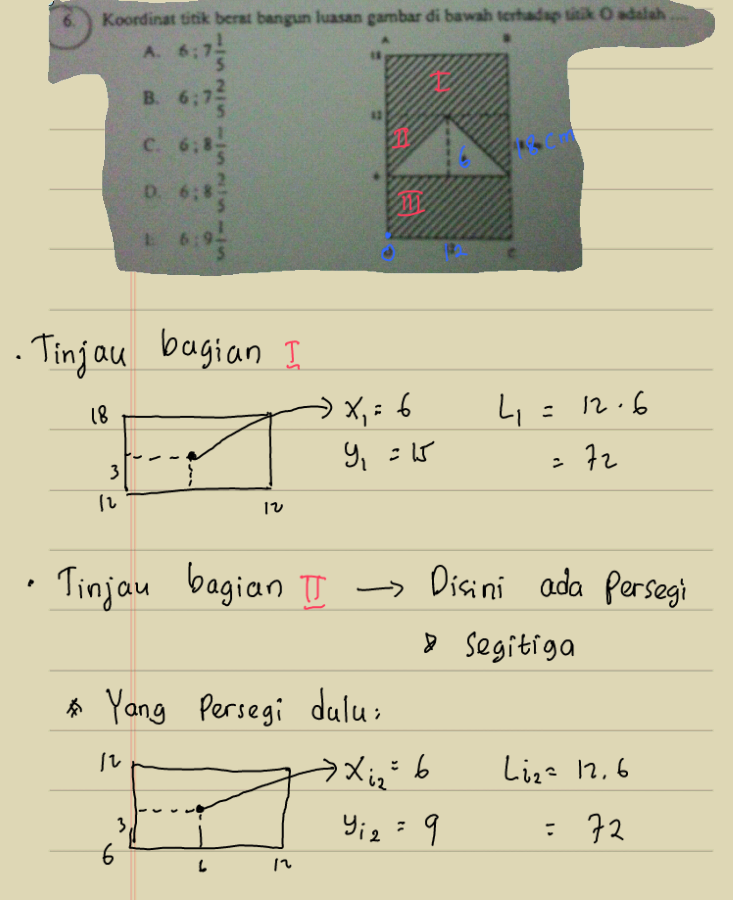 6. Koordinat titik berat bangun luasan gambar di bawah terhadap titik O adalah ....
A. 6 ; 7 1/5
B. 6 ; 7 2/5
C. 6 ; 8 1/5
D. 6 ; 8 2/5
E. 6 ; 9 1/5
A B
18
I
12
II 6 18 cm
6
III
0 12 C
. Tinjau bagian I
18 X₁ = 6 L₁ = 12 . 6
3 y₁ = 15 = 72
12 12
. Tinjau bagian II → Disini ada Persegi
& Segitiga
* Yang Persegi dulu :
12 Xi₂ = 6 Li₂ = 12 . 6
3 yi₂ = 9 = 72
6 6 12